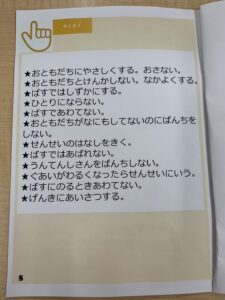 やくそく
★おともだちにやさしくする。おさない。
★おともだちとけんかしない。なかよくする。
★ばすではしずかにする。
★ひとりにならない。
★ばすであわてない。
★おともだちがなにもしてないのにぱんちを
しない。
★せんせいのはなしをきく。
★ばすではあばれない。
★うんてんしさんをぱんちしない。
★ぐあいがわるくなったらせんせいにいう。
★ばすにのるときあわてない。
★げんきにあいさつする。